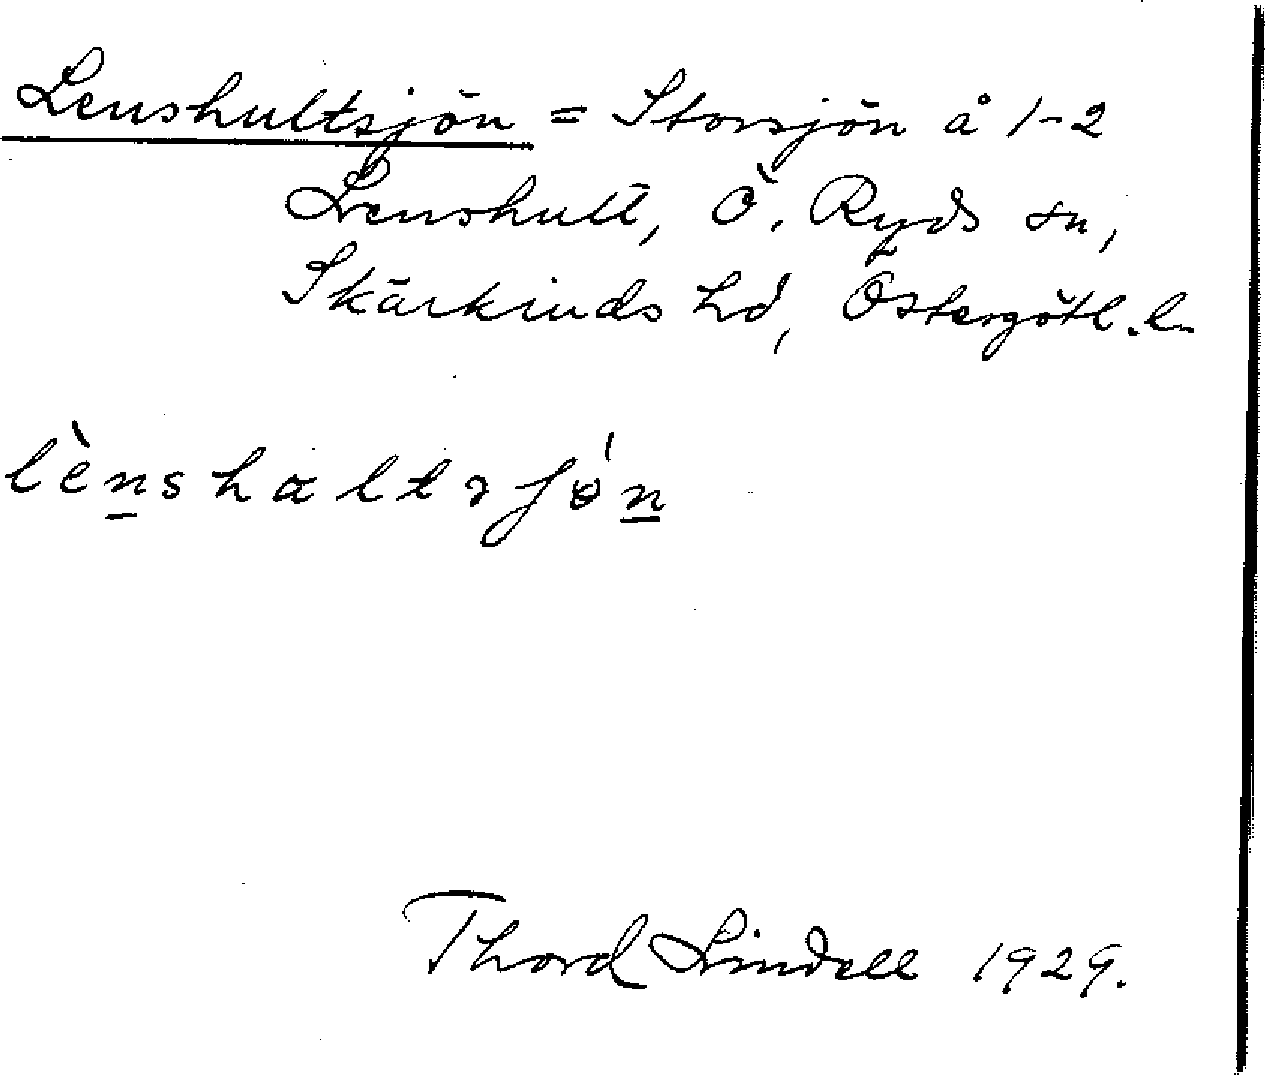 Lenshultsjön = Storsjön å 1-2
Lenshult, Ö. Ryds sn,
Skärkinds hd, Östergötl. l.
lènshaltsjón
Thord Lindell 1929.